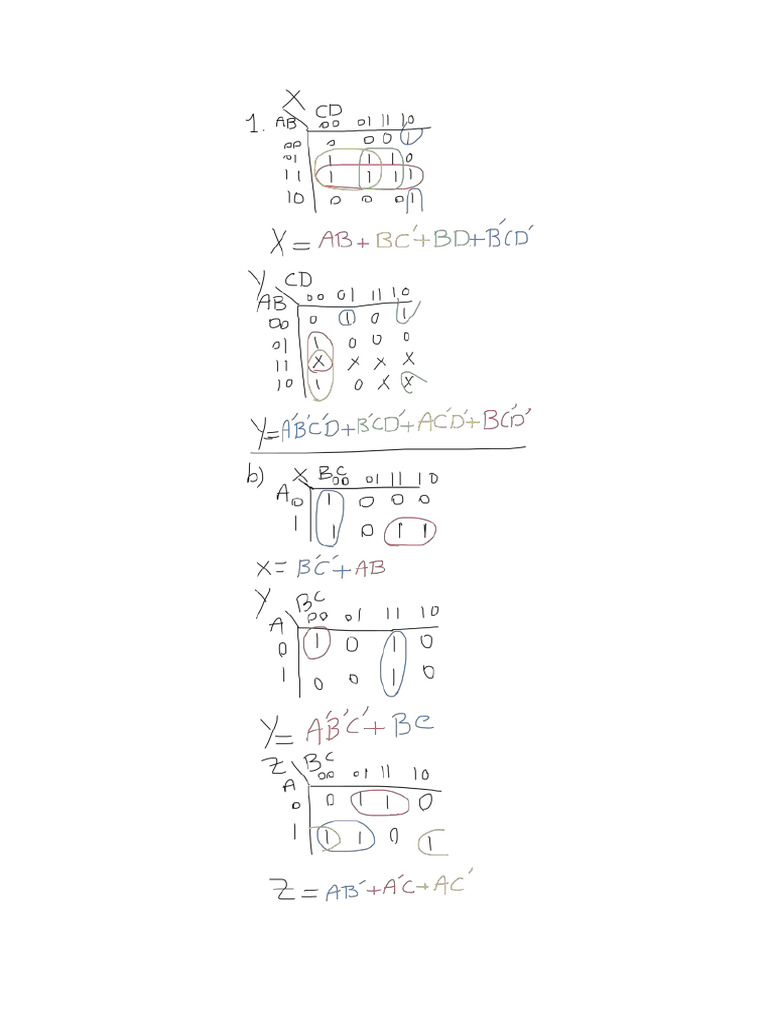 X
1. AB CD
00 01 11 10
00 0 0 0 1
01 1 1 1 0
11 1 1 1 1
10 0 0 0 1
X = AB + BC' + BD + B'CD'
Y CD
AB 00 01 11 10
00 0 1 0 1
01 1 0 0 0
11 X X X X
10 1 0 X X
Y = A'B'C'D + B'CD' + AC'D' + BC'D'
b) X BC
A 00 01 11 10
0 1 0 0 0
1 1 0 1 1
X = B'C' + AB
Y BC
A 00 01 11 10
0 1 0 1 0
1 0 0 1 0
Y = A'B'C' + BC
Z BC
A 00 01 11 10
0 0 1 1 0
1 1 1 0 1
Z = AB' + A'C + AC'